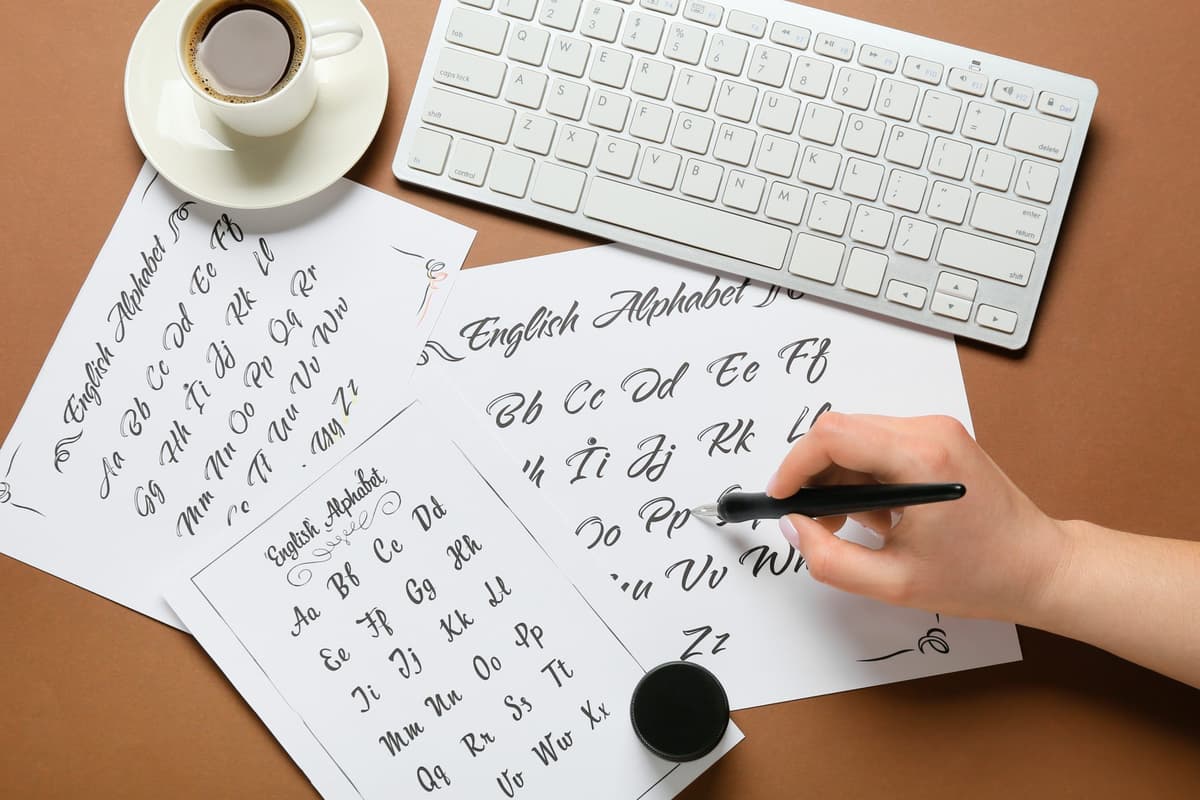 @ 2
# 3
$ 4
% 5
^ 6
& 7
* 8
( 9
) 0
- =
delete
tab Q W E R T Y U I O P { [ } ] | \
caps lock A S D F G H J K L : ; " ' enter return
shift Z X C V B N M < , > . ? / shift
fn control
English Alphabet
Aa Bb Cc Dd Ee Ff
Gg Hh Ii Jj Kk Ll
Mm Nn Oo Pp Qq Rr
Tt Uu Vv Ww
Yy Zz
English Alphabet
Bb Cc Dd Ee Ff
Ii Jj Kk
Oo Pp
Vv Ww
Zz
English Alphabet
Aa Bb Cc Dd
Ee Ff Gg Hh
Ii Jj Kk Ll
Mm Nn Oo Pp
Qq Rr Ss Tt
Vv Ww Xx